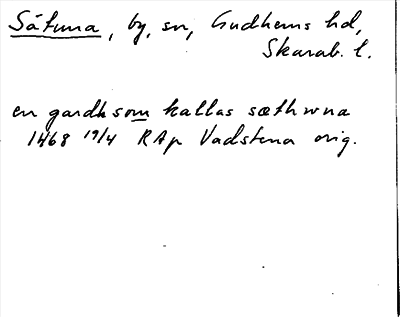 Såtuna, by, sn, Gudhems hd,
Skarab. l.
en gardh som kallas sæthwna
1468 19/4 RAp Vadstena orig.